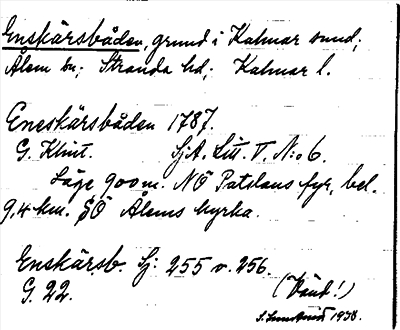 Enskärsbåden, grund i Kalmar sund;
Ålem sn; Stranda hd; Kalmar l.
Eneskärsbåden 1787.
G. Klint. SjA. Litt. V. N:o 6.
Läge 900 m. NÖ Patslaus fyr, bel.
9,4 km. SÖ Ålems kyrka.
Enskärsb. Sj: 255 o. 256.
G. 22. (Vänd!)
1938.